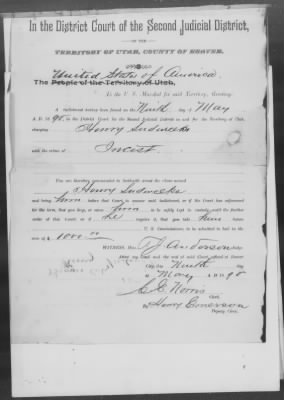 In the District Court of the Second Judicial District,
OF THE
TERRITORY OF UTAH, COUNTY OF BEAVER.
United States of America
The People of the Territory of Utah,
To the U. S. Marshal for said Territory, Greeting:
A indictment having been found on the Ninth day of May
A. D. 1890, in the District Court for the Second Judicial District in and for the Territory of Utah,
charging Henry Sudweeks
with the crime of Incest
You are therefore commanded to forthwith arrest the above-named
Henry Sudweeks
and bring him before that Court to answer said indictment, or if the Court has adjourned
for the term, that you keep, or cause him to be safely kept in custody until the further
order of this Court; or if he require it, that you take him before
U. S. Commissioner, to be admitted to bail in the
sum of $ 1000.00
WITNESS Hon. T. J. Anderson Judge
After my hand and the seal of said Court, affixed at Beaver
City, this Ninth day
of May 1890
C. E. Norris
Clerk.
By Henry Emerson
Deputy Clerk.